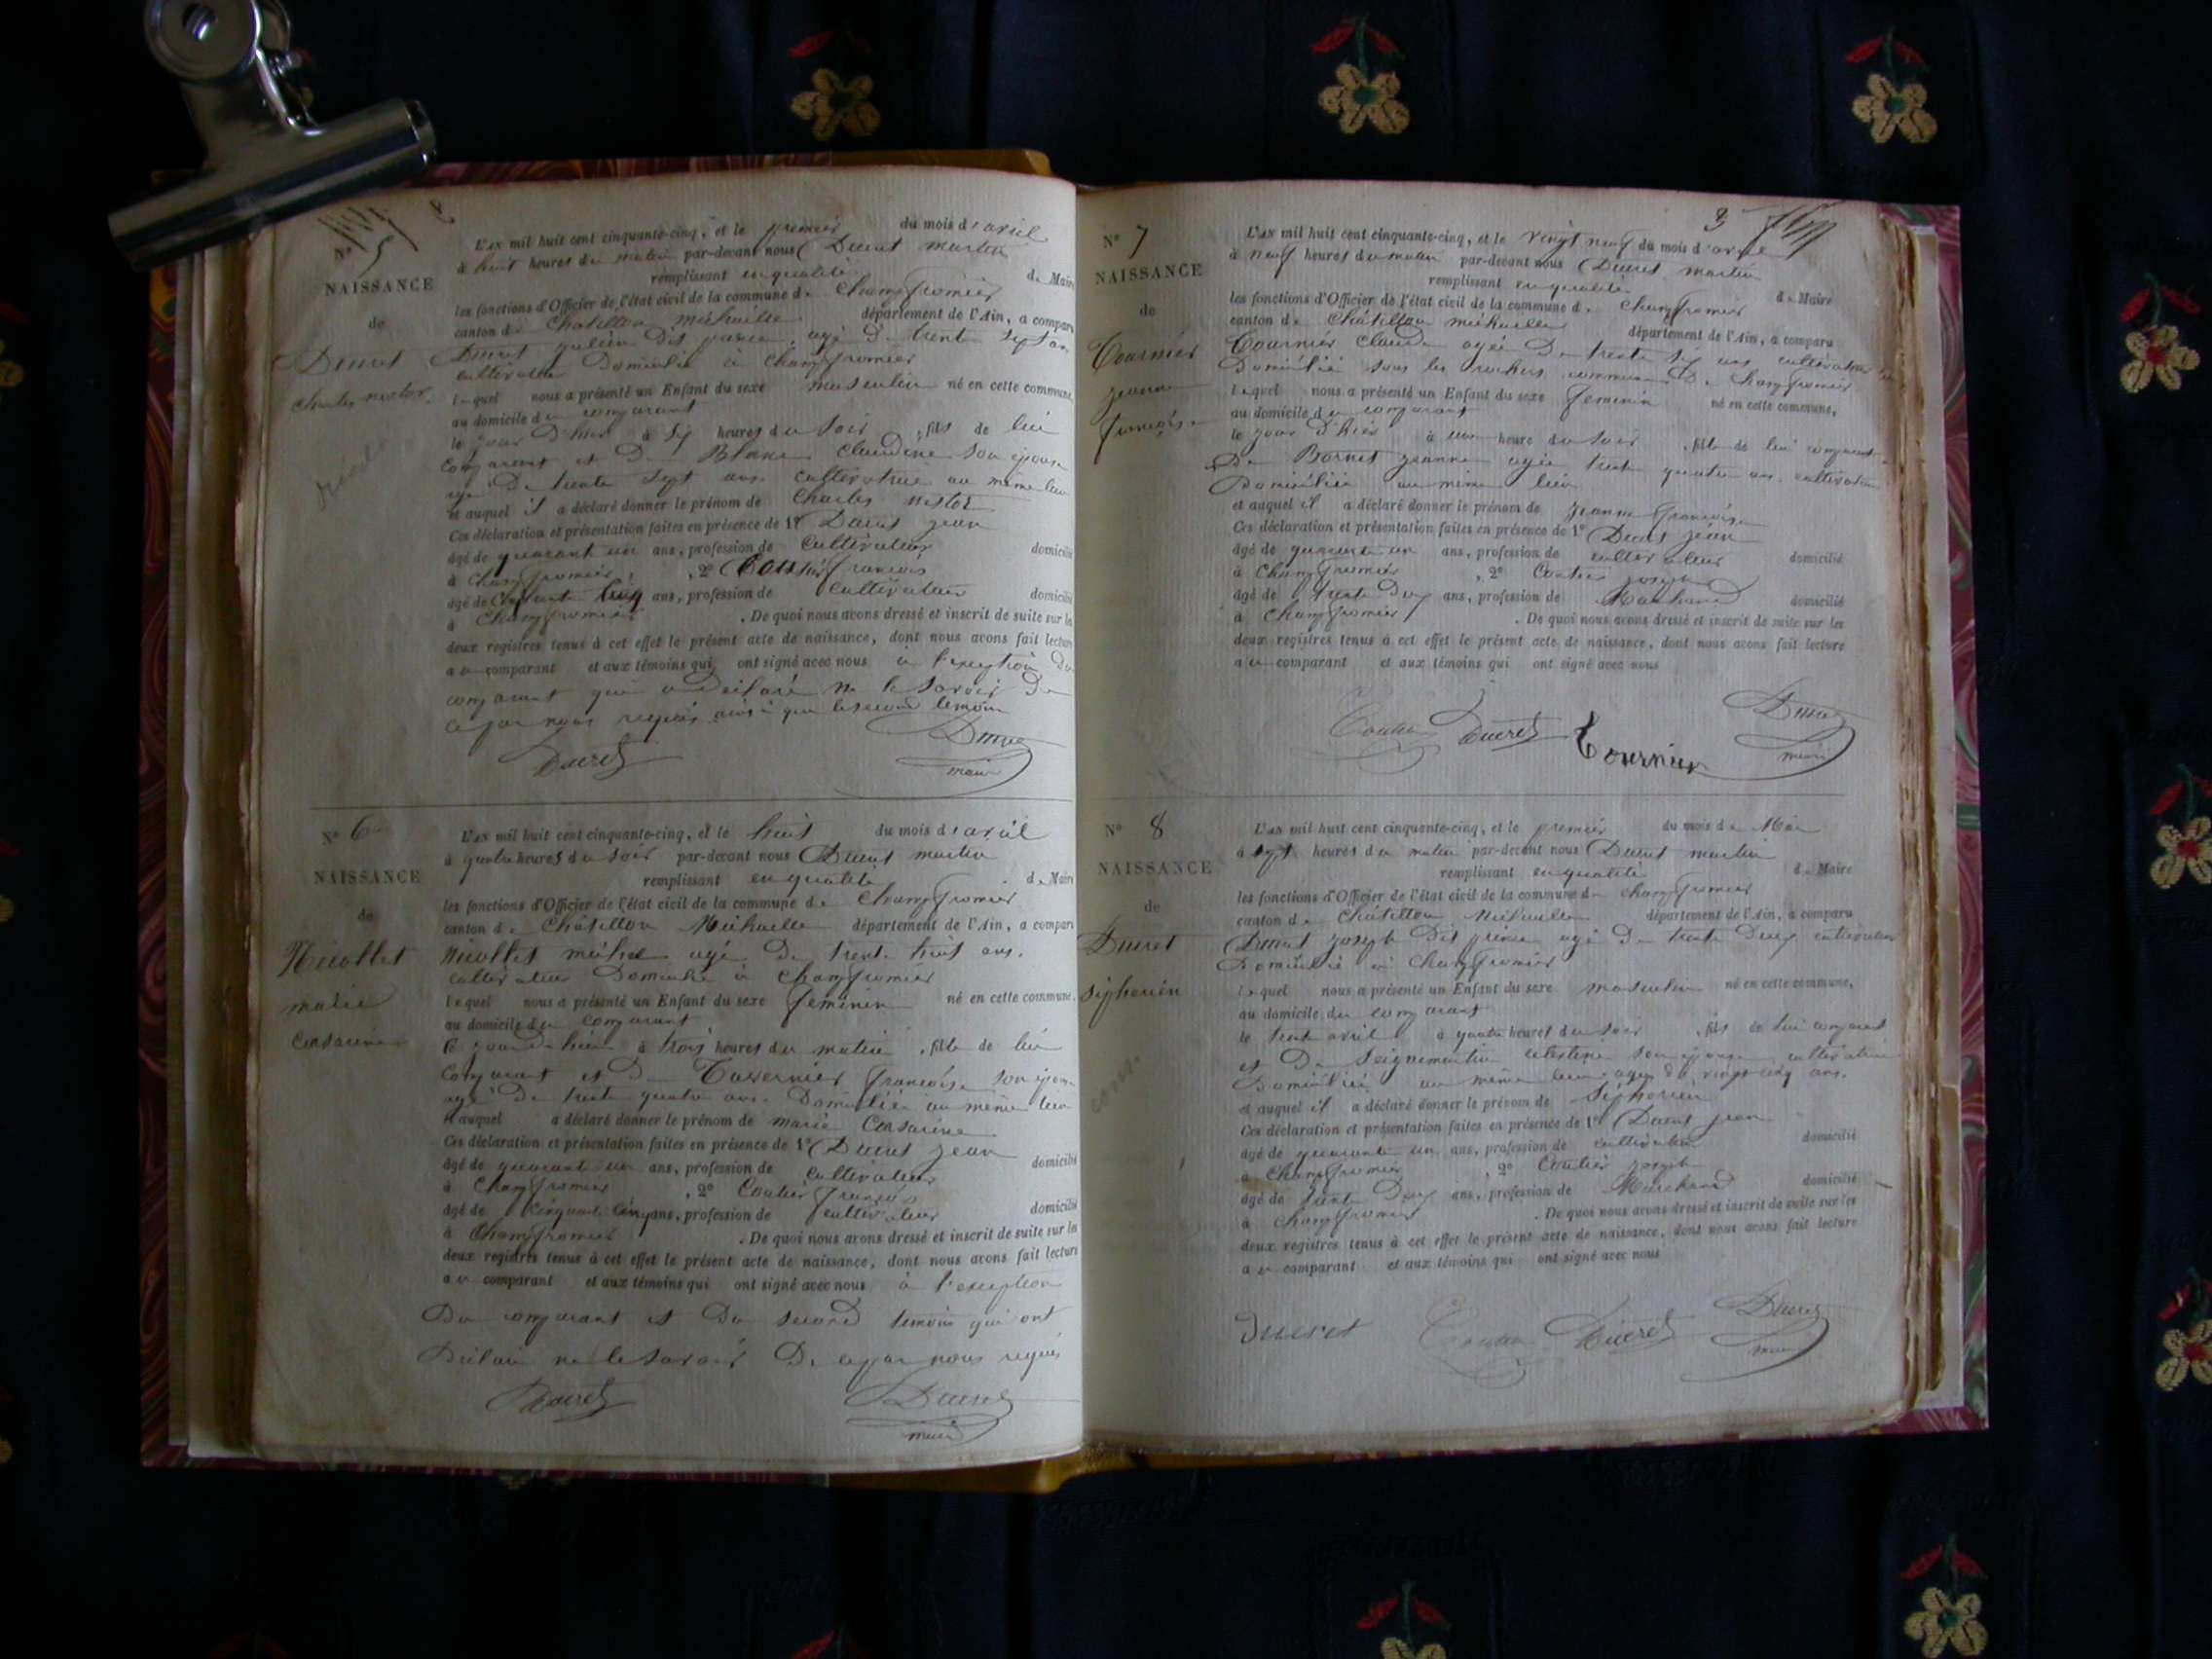 Nº 5
NAISSANCE
de
Ducret
Charles nestor
L'an mil huit cent cinquante-cinq, et le premier du mois d'avril
à huit heures du matin par-devant nous Ducret martin
remplissant en qualité de Maire
les fonctions d'Officier de l'état civil de la commune de Champfromier
canton de Châtillon michaille département de l'Ain, a comparu
Ducret julien dit agé de trente sept ans
cultivateur Domicilié à Champfromier
lequel nous a présenté un Enfant du sexe masculin né en cette commune,
au domicile du comparant
le jour d'hier à six heures du soir, fils de lui
comparant et de Blanc Claudine son épouse
agé de trente sept ans cultivatrice au même lieu
et auquel il a déclaré donner le prénom de Charles nestor
Ces déclaration et présentation faites en présence de 1º Ducret jean
âgé de quarant un ans, profession de Cultivateur domicilié
à Champfromier, 2º Coutier francois
âgé de Cinquante Cinq ans, profession de Cultivateur domicilié
à Champfromier. De quoi nous avons dressé et inscrit de suite sur les
deux registres tenus à cet effet le présent acte de naissance, dont nous avons fait lecture
au comparant et aux témoins qui ont signé avec nous à l'exception du
comparant qui a déclaré ne le savoir de
ce par nous requis ainsi que le second témoin
Ducret Ducret
maire
Nº 6
NAISSANCE
de
Nicollet
marie
Cesarine
L'an mil huit cent cinquante-cinq, et le huit du mois d'avril
à quatre heures du soir par-devant nous Ducret martin
remplissant en qualité de Maire
les fonctions d'Officier de l'état civil de la commune de Champfromier
canton de Châtillon Michaille département de l'Ain, a comparu
Nicollet michel agé de trente huit ans.
cultivateur Domicilié à Champfromier
lequel nous a présenté un Enfant du sexe feminin né en cette commune,
au domicile du comparant
le jour d'hier à trois heures du matin, fille de lui
comparant et de Tavernier françoise son épouse
agé de trente quatre ans Domicilié au même lieu
et auquel a déclaré donner le prénom de marie Cesarine
Ces déclaration et présentation faites en présence de 1º Ducret jean
âgé de quarante un ans, profession de cultivateur domicilié
à Champfromier, 2º Coutier françois
âgé de Cinquante Cinq ans, profession de cultivateur domicilié
à Champfromier. De quoi nous avons dressé et inscrit de suite sur les
deux registres tenus à cet effet le présent acte de naissance, dont nous avons fait lecture
au comparant et aux témoins qui ont signé avec nous à l'exception
du comparant et du second témoin qui ont
Déclaré ne le savoir De ce par nous requis
Ducret Ducret
maire
3
Nº 7
NAISSANCE
de
Tournier
jeanne
françoise
L'an mil huit cent cinquante-cinq, et le vingt neuf du mois d'avril
à neuf heures du matin par-devant nous Ducret martin
remplissant en qualité de Maire
les fonctions d'Officier de l'état civil de la commune de Champfromier
canton de Châtillon michaille département de l'Ain, a comparu
Tournier Claude agée de trente six ans cultivateur
Domicilié sous les rochers commune de Champfromier
lequel nous a présenté un Enfant du sexe feminin né en cette commune,
au domicile du comparant
le jour d'hier à une heure du soir, fille de lui comparant
de Bornet jeanne agée trente quatre ans cultivatrice
Domiciliée au même lieu
et auquel il a déclaré donner le prénom de jeanne françoise
Ces déclaration et présentation faites en présence de 1º Ducret jean
âgé de quarante un ans, profession de cultivateur domicilié
à Champfromier, 2º Coutier joseph
âgé de trente deux ans, profession de Marchand domicilié
à Champfromier. De quoi nous avons dressé et inscrit de suite sur les
deux registres tenus à cet effet le présent acte de naissance, dont nous avons fait lecture
au comparant et aux témoins qui ont signé avec nous
Coutier Ducret Tournier Ducret
maire
Nº 8
NAISSANCE
de
Ducret
Siphorien
L'an mil huit cent cinquante-cinq, et le premier du mois de Mai
à sept heures du matin par-devant nous Ducret martin
remplissant en qualité de Maire
les fonctions d'Officier de l'état civil de la commune de Champfromier
canton de Châtillon Michaille département de l'Ain, a comparu
Ducret joseph dit prince agé de trente deux cultivateur
Domicilié à Champfromier
lequel nous a présenté un Enfant du sexe masculin né en cette commune,
au domicile du comparant
le trente avril à quatre heures du soir, fils de lui comparant
et de Seignemartin celestine son épouse cultivatrice
Domiciliée au même lieu agée de vingt cinq ans.
et auquel il a déclaré donner le prénom de Siphorien
Ces déclaration et présentation faites en présence de 1º Ducret jean
âgé de quarante un ans, profession de cultivateur domicilié
à Champfromier, 2º Coutier joseph
âgé de trente deux ans, profession de Marchand domicilié
à Champfromier. De quoi nous avons dressé et inscrit de suite sur les
deux registres tenus à cet effet le présent acte de naissance, dont nous avons fait lecture
au comparant et aux témoins qui ont signé avec nous
Ducret Coutier Ducret Ducret
maire